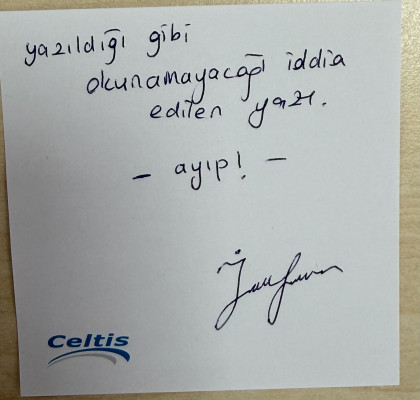 yazıldığı gibi
okunamayacağı iddia
edilen yazı.
- ayıp! -
Celtis